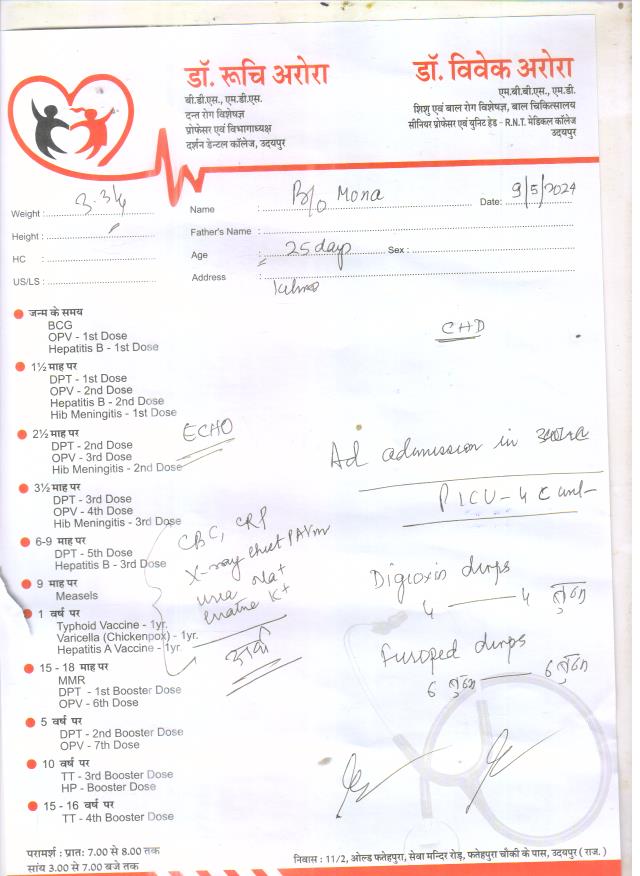 डॉ. रूचि अरोरा
बी.डी.एस., एम.डी.एस.
दन्त रोग विशेषज्ञ
प्रोफेसर एवं विभागाध्यक्ष
दर्शन डेन्टल कॉलेज, उदयपुर
डॉ. विवेक अरोरा
एम.बी.बी.एस., एम.डी.
शिशु एवं बाल रोग विशेषज्ञ, बाल चिकित्सालय
सीनियर प्रोफेसर एवं युनिट हेड - R.N.T. मेडिकल कॉलेज
उदयपुर
Weight : 3.34
Name : B/o Mona Date: 9/5/2024
Height :
Father's Name :
HC :
Age : 25 days Sex :
US/LS :
Address :
CHD
जन्म के समय
BCG
OPV - 1st Dose
Hepatitis B - 1st Dose
1½ माह पर
DPT - 1st Dose
OPV - 2nd Dose
Hepatitis B - 2nd Dose
Hib Meningitis - 1st Dose
2½ माह पर
DPT - 2nd Dose
OPV - 3rd Dose
Hib Meningitis - 2nd Dose
ECHO
3½ माह पर
DPT - 3rd Dose
OPV - 4th Dose
Hib Meningitis - 3rd Dose
6-9 माह पर
DPT - 5th Dose
Hepatitis B - 3rd Dose
9 माह पर
Measels
1 वर्ष पर
Typhoid Vaccine - 1yr.
Varicella (Chickenpox) - 1yr.
Hepatitis A Vaccine - 1yr.
15 - 18 माह पर
MMR
DPT - 1st Booster Dose
OPV - 6th Dose
5 वर्ष पर
DPT - 2nd Booster Dose
OPV - 7th Dose
10 वर्ष पर
TT - 3rd Booster Dose
HP - Booster Dose
15 - 16 वर्ष पर
TT - 4th Booster Dose
CBC, CRP
X-ray chest PA View
urea Na+
K+
Ad admission in
PICU - 4
Digoxin drops
4 — 4 बूंद
Furoped drops
6 बूंद — 6 बूंद
परामर्श : प्रातः 7.00 से 8.00 तक
सांय 3.00 से 7.00 बजे तक
निवास : 11/2, ओल्ड फतेहपुरा, सेवा मन्दिर रोड़, फतेहपुरा चौकी के पास, उदयपुर ( राज. )